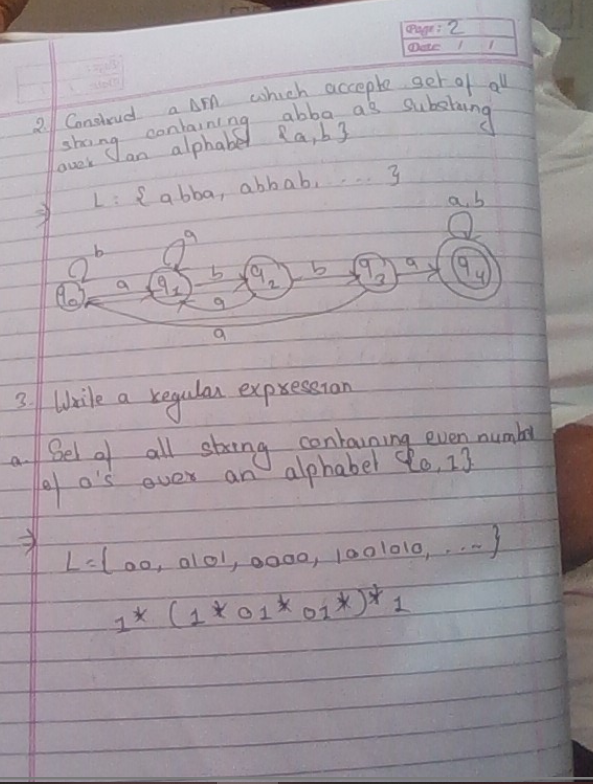 Page: 2
Date: / /
2. Construd a DFA which accepte set of all
string containing abba as substring
over an alphabet {a,b}
⇒ L = { abba, abbab, .... }
b a a,b
q0 a q1 b q2 b q3 a q4
a
a
3. Write a regular expression
a. Set of all string containing even number
of 0's over an alphabet {0,1}
⇒ L={00, 0101, 0000, 1001010, ....}
1* (1*01*01*)*1